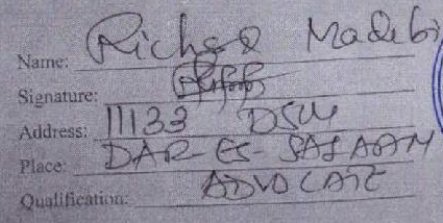 Name: Richard Madebi
Signature:
Address: 11133 DSM
Place: DAR-ES-SALAAM
Qualification: ADVOCATE